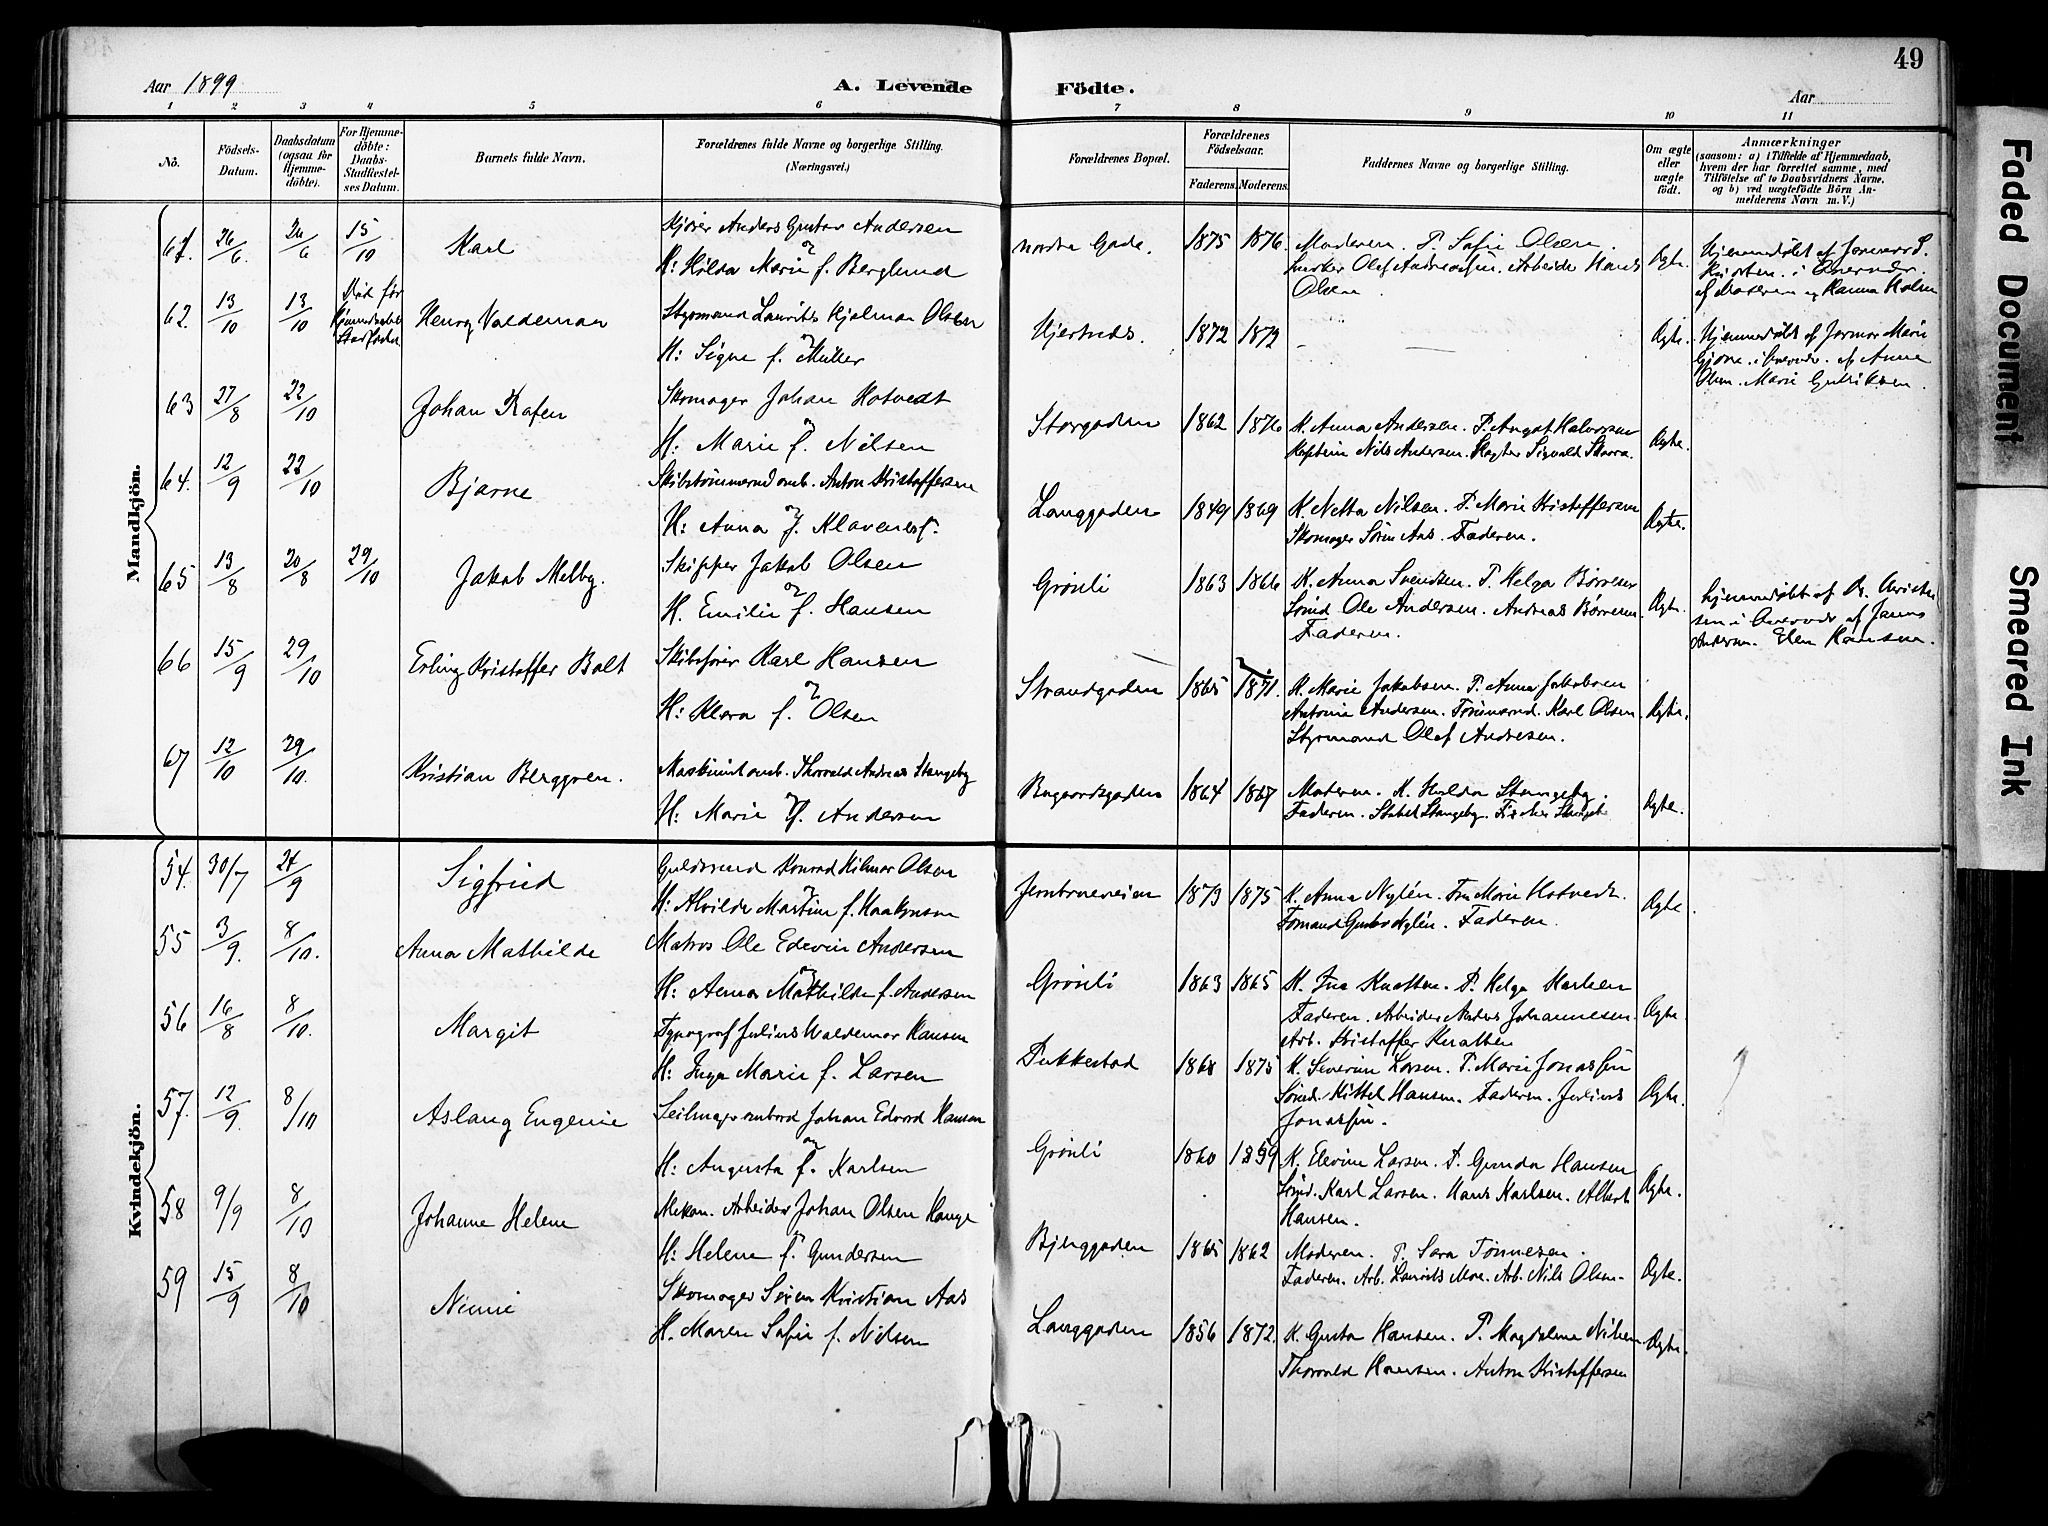 49
Aar 1899
A. Levende Födte.
Aar
1 2 3 4 5 6 7 8 9 10 11
Nö.
Födsels-Datum.
Daabsdatum (ogsaa for Hjemme-döbte).
For Hjemme-döbte: Daabs-Stadfæstel-ses Datum.
Barnets fulde Navn.
Forældrenes fulde Navne og borgerlige Stilling. (Næringsvei.)
Forældrenes Bopæl.
Forældrenes Födselsaar.
Faderens. Moderens.
Faddernes Navne og borgerlige Stilling.
Om ægte eller uægte født.
Anmærkninger
(saasom: a) i Tilfælde af Hjemmedaab,
hvem der har forrettet samme, med
Tilföielse af to Daabsvidners Navne.
og b) ved uægtefödte Börn An-
melderens Navn m. V.)
Mandkjön.
61. 26/6 26/6 15/10 Karl
Anders Gustav Andersen
og
H: Hilda Marie f. Berglund
nordre Gade. 1875 1876. Moderen. P. Sofie Olsen.
Olaf Andreassen. Arbeider Hans
Olsen
Ægte.
Hjemmedøbt af Jormord.
62. 13/10 13/10 Henry Valdemar
Styrmand Laurits Hjalmar Olsen
og
H: Signe f. Müller
Hjertnes. 1872 1872 - — Ægte.
Hjemmedøbt af Jormor Marie
Olsen. Marie
63 27/8 22/10 Johan
Skomager Johan Hotvedt
og
H: Marie f. Nilsen
Storgaden 1862 1876 K. Anna Andersen. P. August Halvorsen
Nils Andersen. Sigvald
Ægte.
64. 12/9 22/10 Bjarne
Skibstømmermd omb. Anton Kristoffersen
og
H: Anna f.
Langgaden 1849 1869 K. Netta Nilsen. P. Marie Kristoffersen
Skomager Sören Aas. Faderen.
Ægte.
65 13/8 20/8 29/10 Jakob Melby.
Skipper Jakob Olsen
og
H. Emilie f. Hansen
Grönli 1863 1866 K. Anna Svendsen. P. Helga Börresen
Sömd Ole Andersen. Andreas Börresen
Faderen.
Ægte.
Hjemmedøbt af Dr. Christen
sen i
Andersen. Elen Hansen.
66 15/9 29/10 Erling Kristoffer Bolt
Skibsfører Karl Hansen
og
H: Klara f. Olsen
Strandgaden 1865 1871. K. Marie Jakobsen. P. Anna Jakobsen
Antonie Andersen. Tömmermd. Karl Olsen.
Styrmand Olaf Andresen.
Ægte.
67 12/10 29/10. Kristian Berggren.
Maskinist omb. Thorvald Andreas Stangeby
og
H: Marie f. Andersen
Bugaardsgaden 1864 1867 Moderen. K. Hulda Stangeby.
Faderen. Stangeby.
Ægte.
Kvindekjön.
54. 30/7 24/9 Sigfrid
Guldsmed Konrad Hilmar Olsen
og
H: Alvilde Martine f. Haakonsen
Jernbaneveien 1873 1875 K. Anna Nylén. Fru Marie Hotvedt.
Gustav Nylén. Faderen.
Ægte.
55 3/9. 8/10. Anna Mathilde
Matros Ole Edevin Andersen
og
H: Anna Mathilde f. Andersen
Grönli 1863 1865 K. Ina Knatten. P. Helga Karlsen
Faderen. Arbeider Anders Johannesen.
Arb. Kristoffer Knatten
Ægte.
56 16/8 8/10. Margit
Typograf Julius Waldemar Hansen
H: Inga Marie f. Larsen
Dukkestad 1868 1875 K. Severine Larsen. P. Marie Jonassen
Sömd. Kittel Hansen. Faderen. Julius
Jonassen.
Ægte.
57. 12/9. 8/10 Aslaug Eugenie
Seilmager ombord Johan Edvard Hansen
og
H: Augusta f. Karlsen
Grönli 1860 1859 K. Elevine Larsen. P. Gunda Hansen
Sömd. Karl Larsen. Hans Karlsen. Albert
Hansen.
Ægte.
58 9/9 8/10 Johanne Helene
Mekan. Arbeider Johan Olsen Hauge
og
H: Helene f. Gundersen
Bjerggaden 1865 1862 Moderen. P. Sara Tönnesen.
Faderen. Arb. Laurits Moe. Arb. Nils Olsen.
Ægte.
59 15/9 8/10 Nimi
Skomager Sören Kristian Aas
H. Maren Sofie f. Nilsen
Langgaden 1856 1872. K. Gusta Hansen. P. Magdalene Nilsen
Thorvald Hansen. Anton Kristoffersen
Ægte.
Faded Document
Smeared Ink